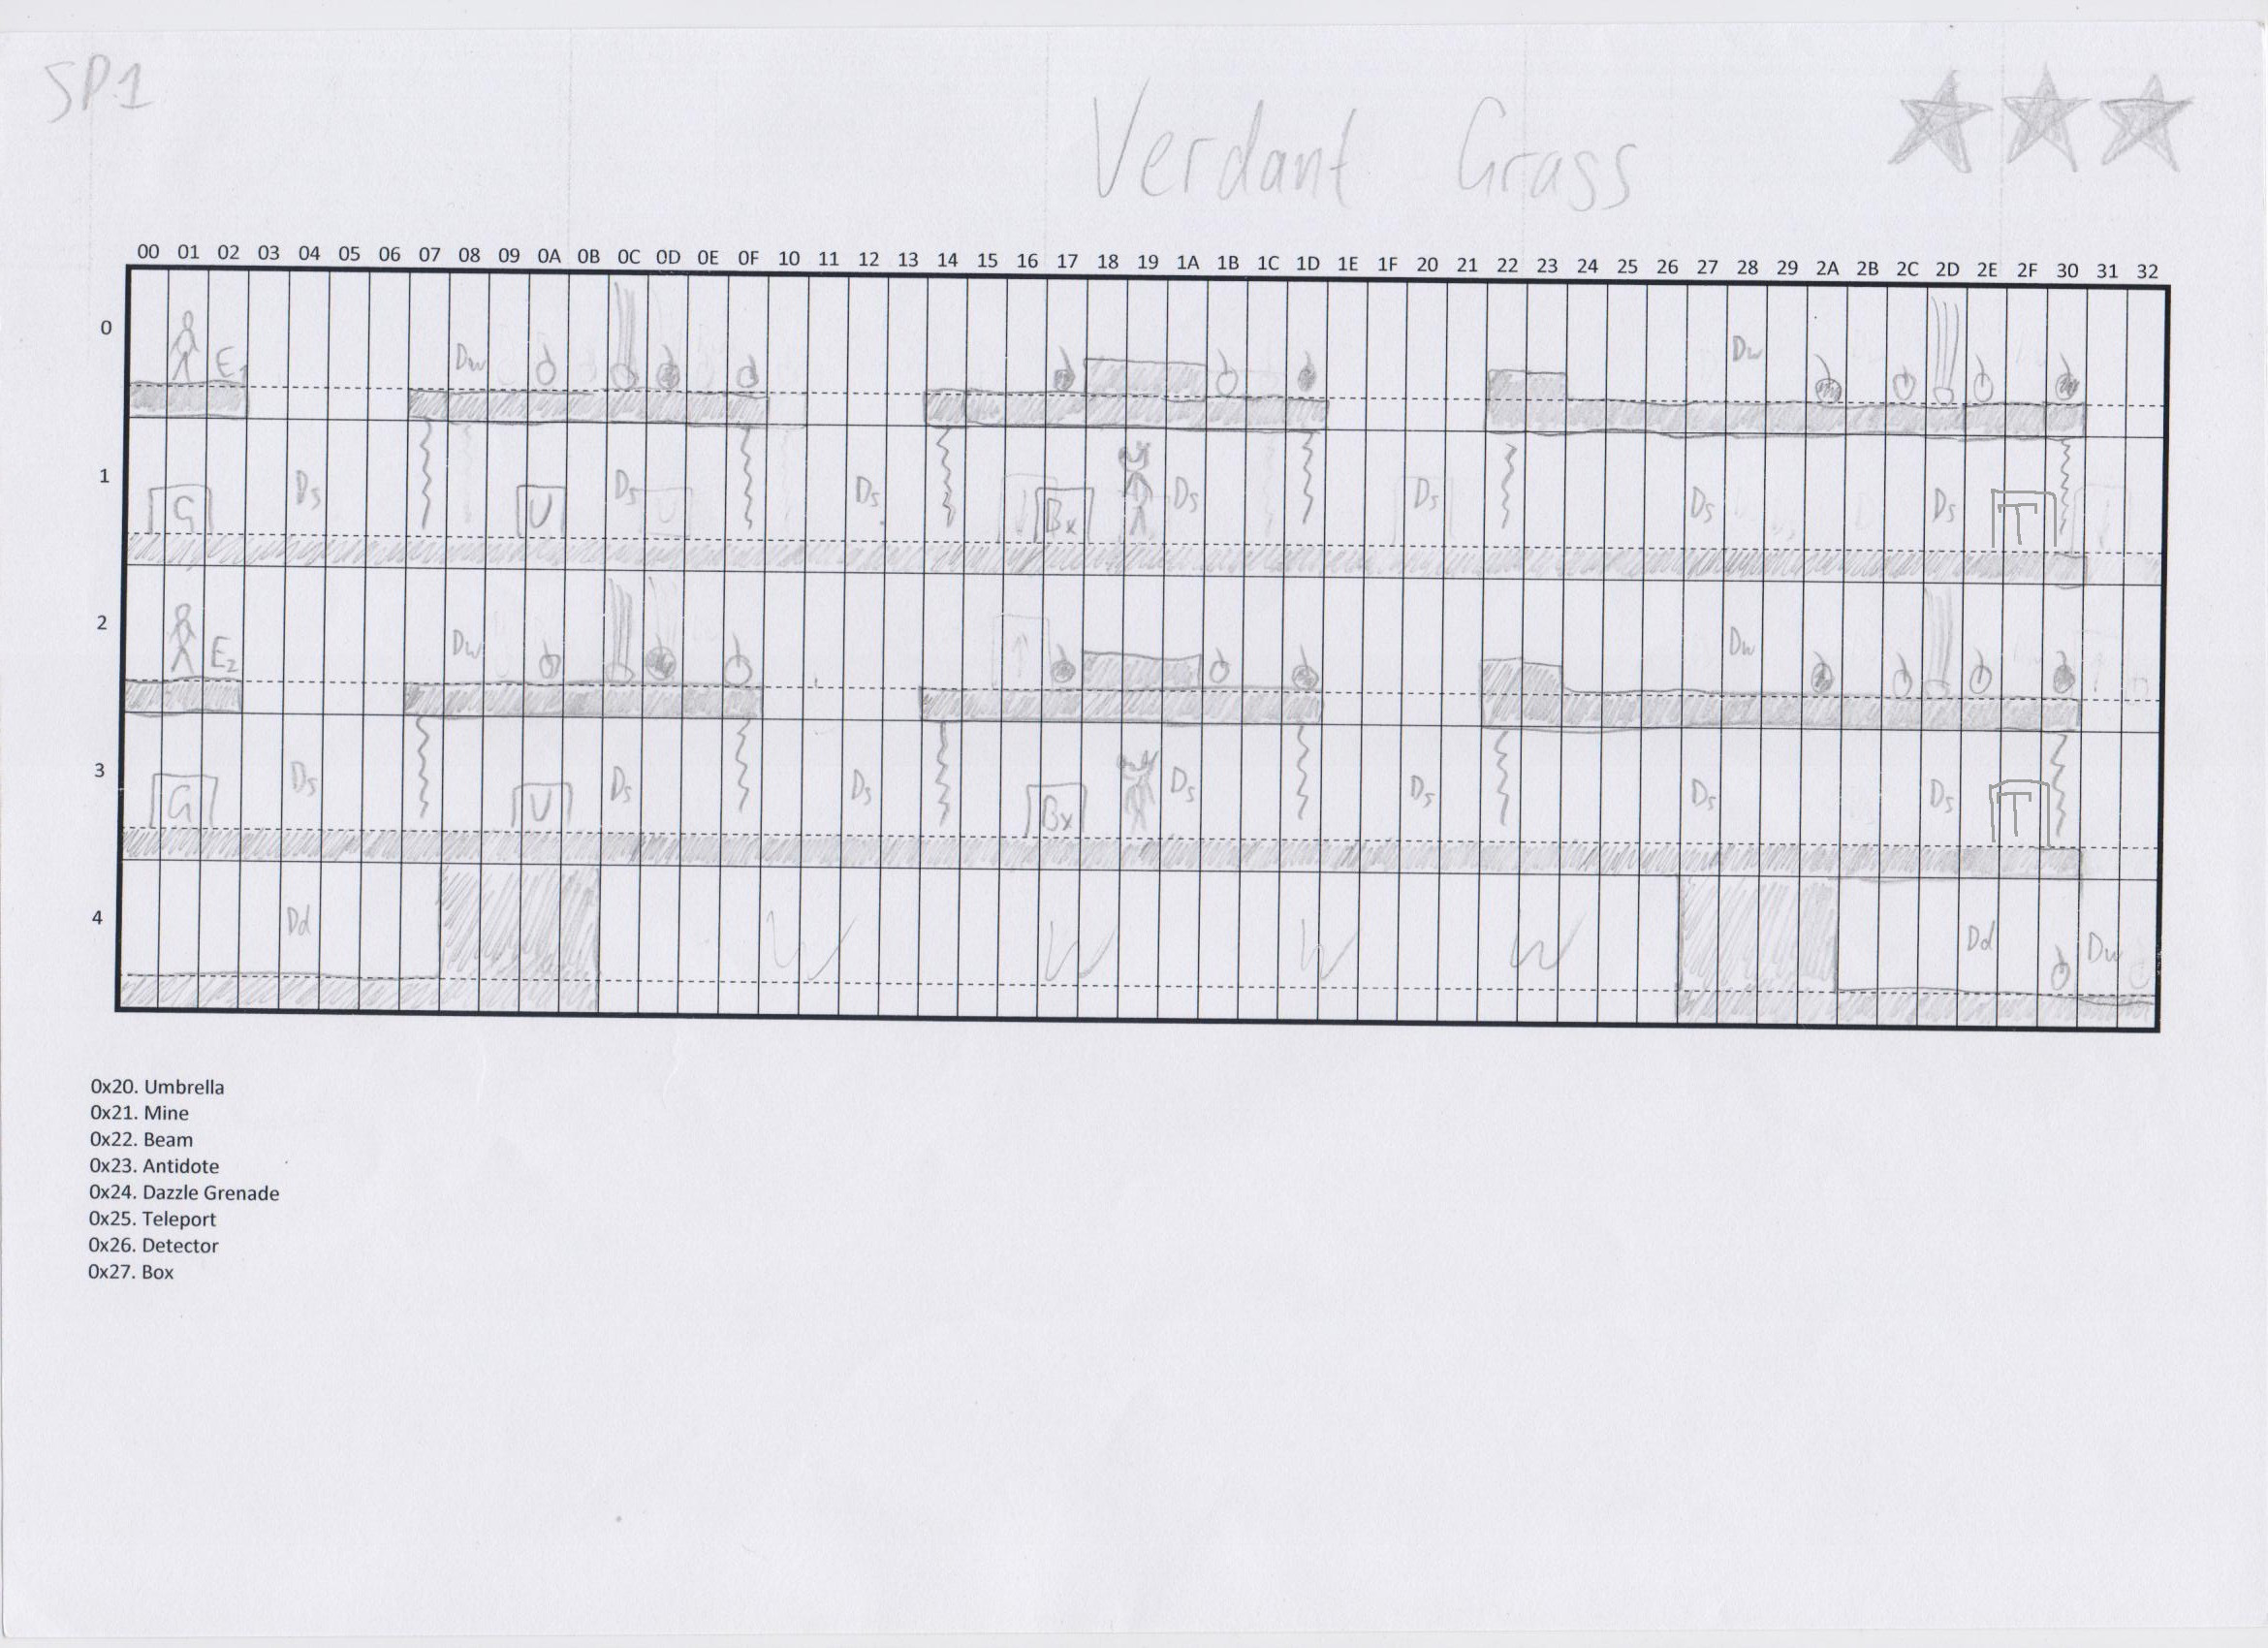 SP1
Verdant Grass
00 01 02 03 04 05 06 07 08 09 0A 0B 0C 0D 0E 0F 10 11 12 13 14 15 16 17 18 19 1A 1B 1C 1D 1E 1F 20 21 22 23 24 25 26 27 28 29 2A 2B 2C 2D 2E 2F 30 31 32
0 E1 Dw Dw
1 G Ds U Ds Ds Bx Ds Ds Ds Ds T
2 E2 Dw Dw
3 G Ds U Ds Ds Bx Ds Ds Ds Ds T
4 Dd W W W W Dd Dw
0x20. Umbrella
0x21. Mine
0x22. Beam
0x23. Antidote
0x24. Dazzle Grenade
0x25. Teleport
0x26. Detector
0x27. Box